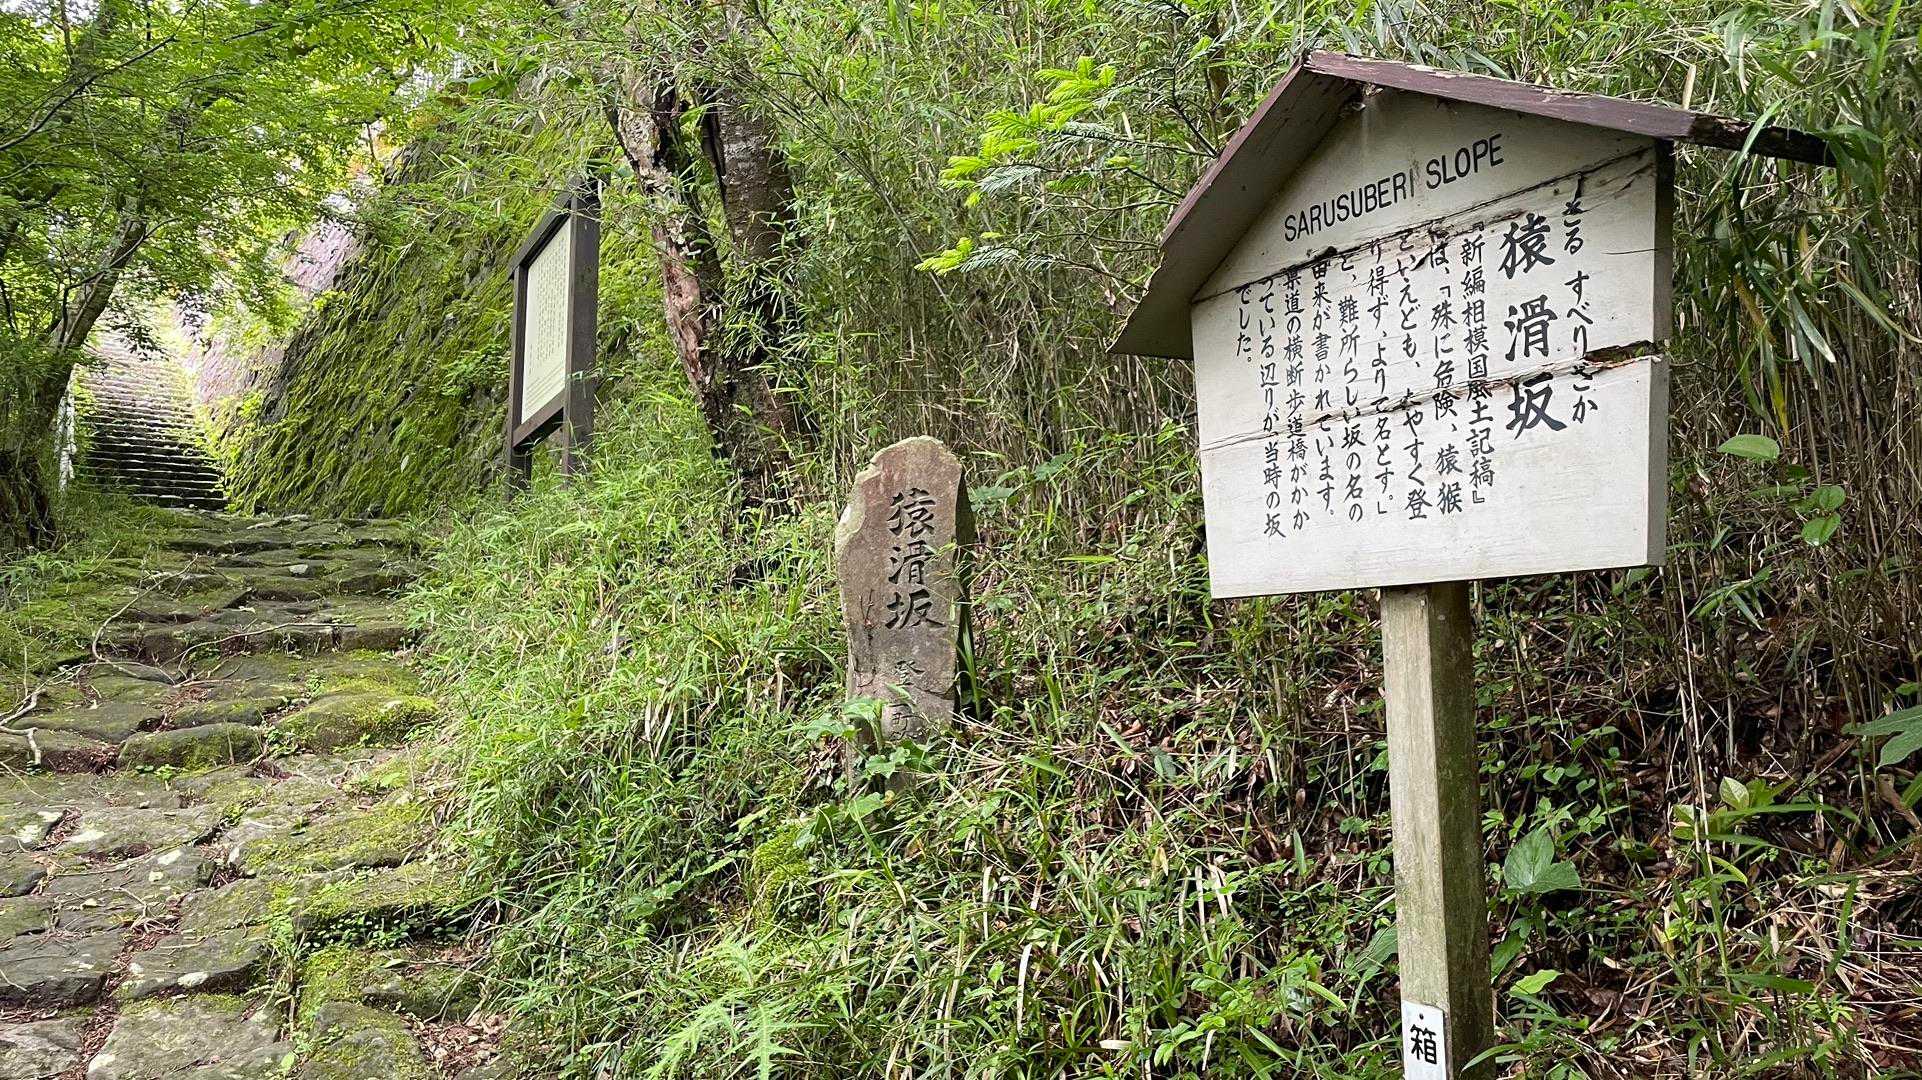 SARUSUBERI SLOPE
さる すべりざか
猿滑坂
『新編相模国風土記稿』
には、「殊に危険、猿猴
といえども、たやすく登
り得ず、よりて名とす。」
と、難所らしい坂の名の
由来が書かれています。
県道の横断歩道橋がかか
っている辺りが当時の坂
でした。
猿滑坂
登
箱